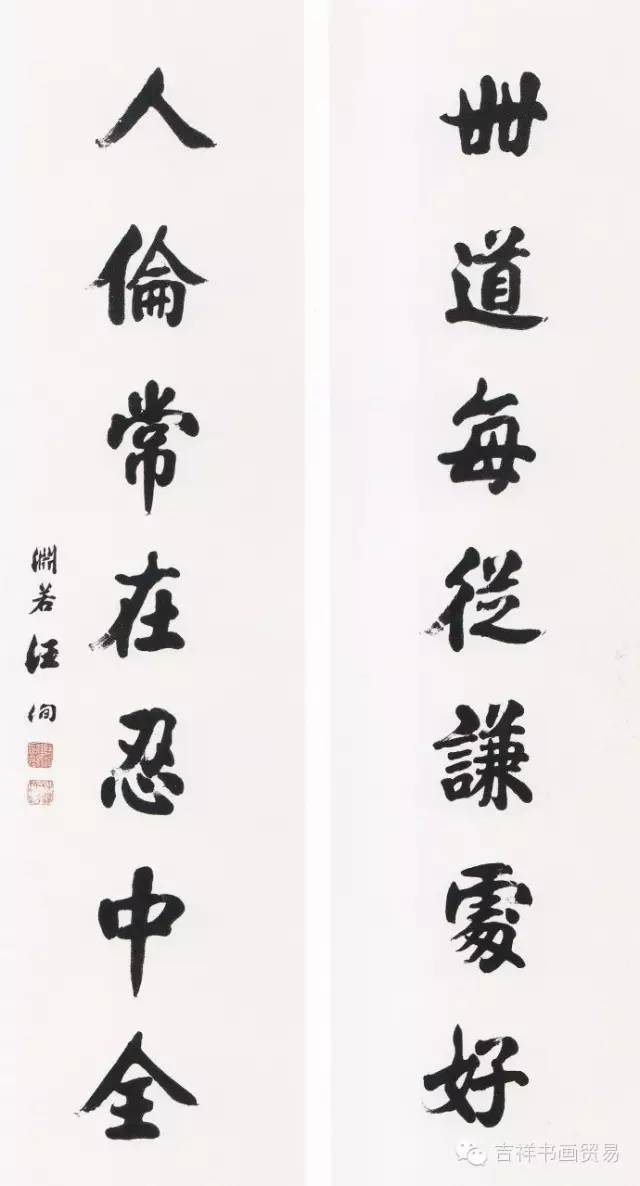 世道每從謙處好
人倫常在忍中全
淵若汪洵
吉祥书画贸易